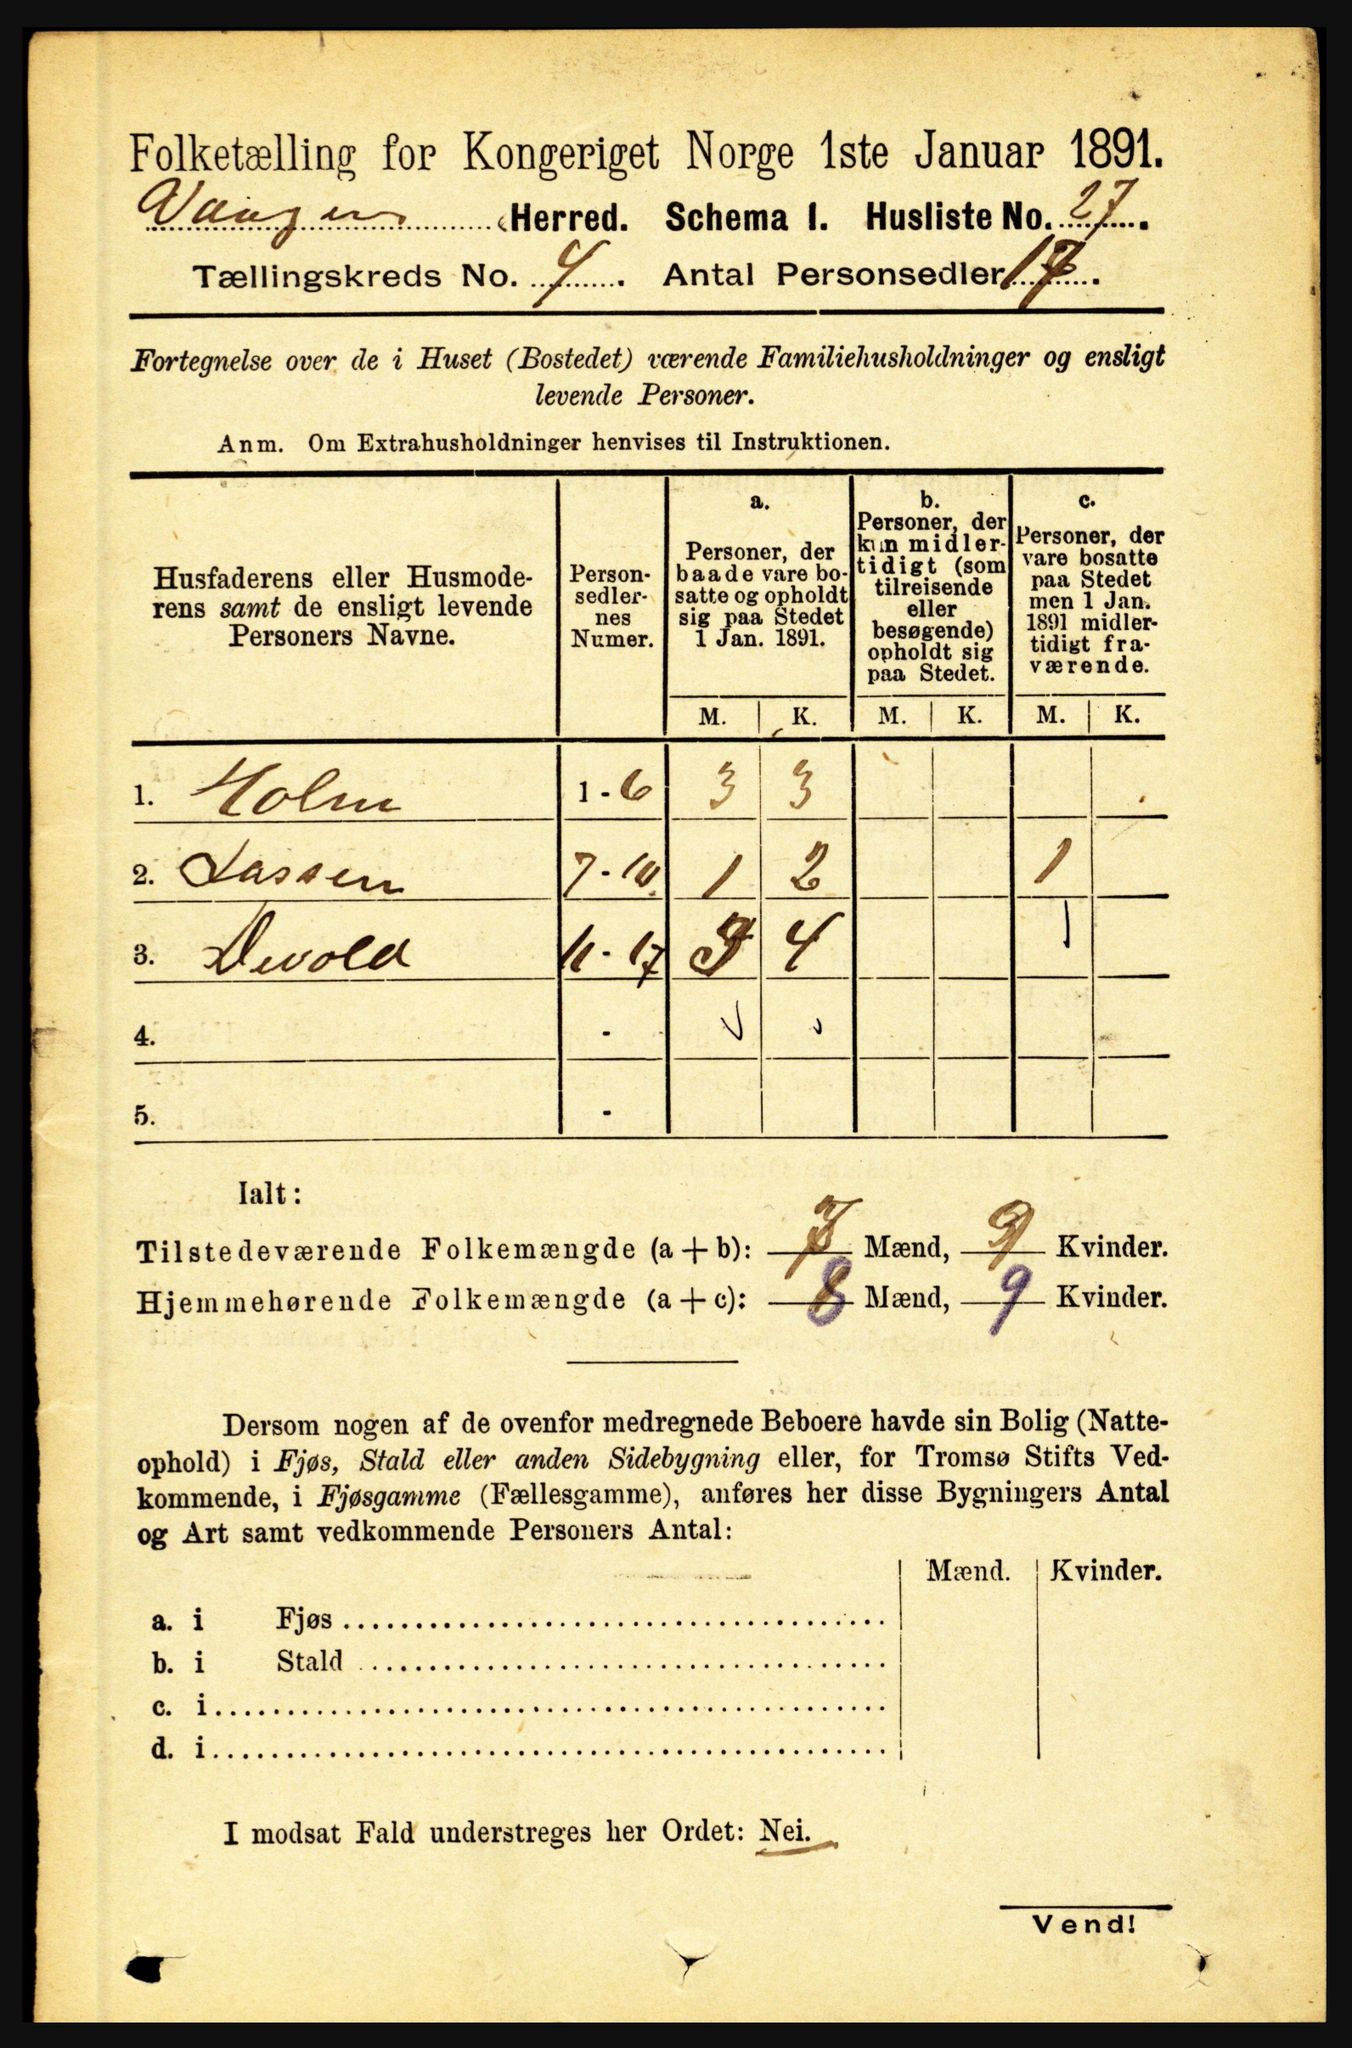 Folketælling for Kongeriget Norge 1ste Januar 1891.
Vaagen Herred. Schema I. Husliste No. 27.
Tællingskreds No. 4. Antal Personsedler 17.
Fortegnelse over de i Huset (Bostedet) værende Familiehusholdninger og ensligt
levende Personer.
Anm. Om Extrahusholdninger henvises til Instruktionen.
Husfaderens eller Husmode-
rens samt de ensligt levende
Personers Navne.
Person-
sedler-
nes
Numer.
a.
Personer, der
baade vare bo-
satte og opholdt
sig paa Stedet
1 Jan. 1891.
b.
Personer, der
kun midler-
tidigt (som
tilreisende
eller
besøgende)
opholdt sig
paa Stedet.
c.
Personer, der
vare bosatte
paa Stedet
men 1 Jan.
1891 midler-
tidigt fra-
værende.
M. K. M. K. M. K.
1. Holm 1-6 3 3
2. Lassen 7-10. 1 2 1
3. Devold 11-17 3 4
4. -
5. -
Ialt:
Tilstedeværende Folkemængde (a + b): 7 Mænd, 9 Kvinder.
Hjemmehørende Folkemængde (a + c): 8 Mænd, 9 Kvinder.
Dersom nogen af de ovenfor medregnede Beboere havde sin Bolig (Natte-
ophold) i Fjøs, Stald eller anden Sidebygning eller, for Tromsø Stifts Ved-
kommende, i Fjøsgamme (Fællesgamme), anføres her disse Bygningers Antal
og Art samt vedkommende Personers Antal:
Mænd. Kvinder.
a. i Fjøs
b. i Stald
c. i
d. i
I modsat Fald understreges her Ordet: Nei.
Vend!